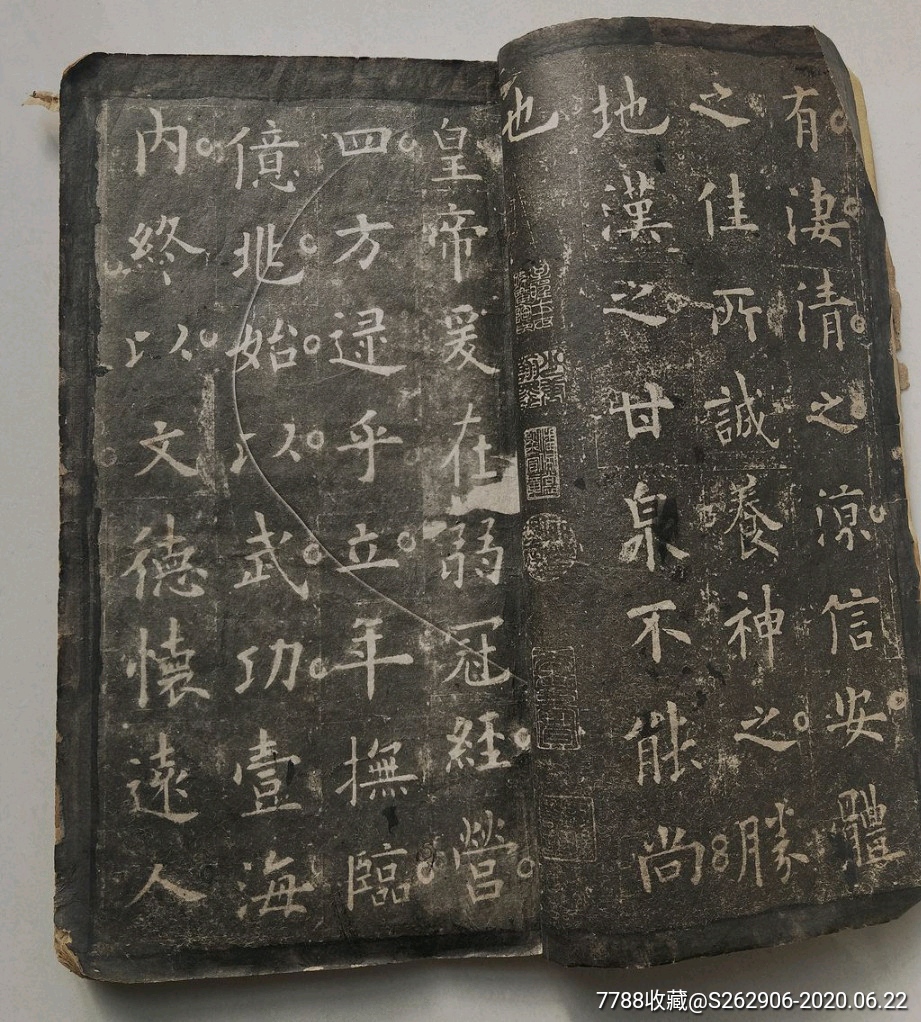 有淒清之涼信安體
之佳所誠養神之勝
地漢之甘泉不能尚
也
皇帝爰在弱冠經營
四方逯乎立年撫臨
億兆始以武功壹海
內終以文德懷遠人
7788收藏@S262906-2020.06.22